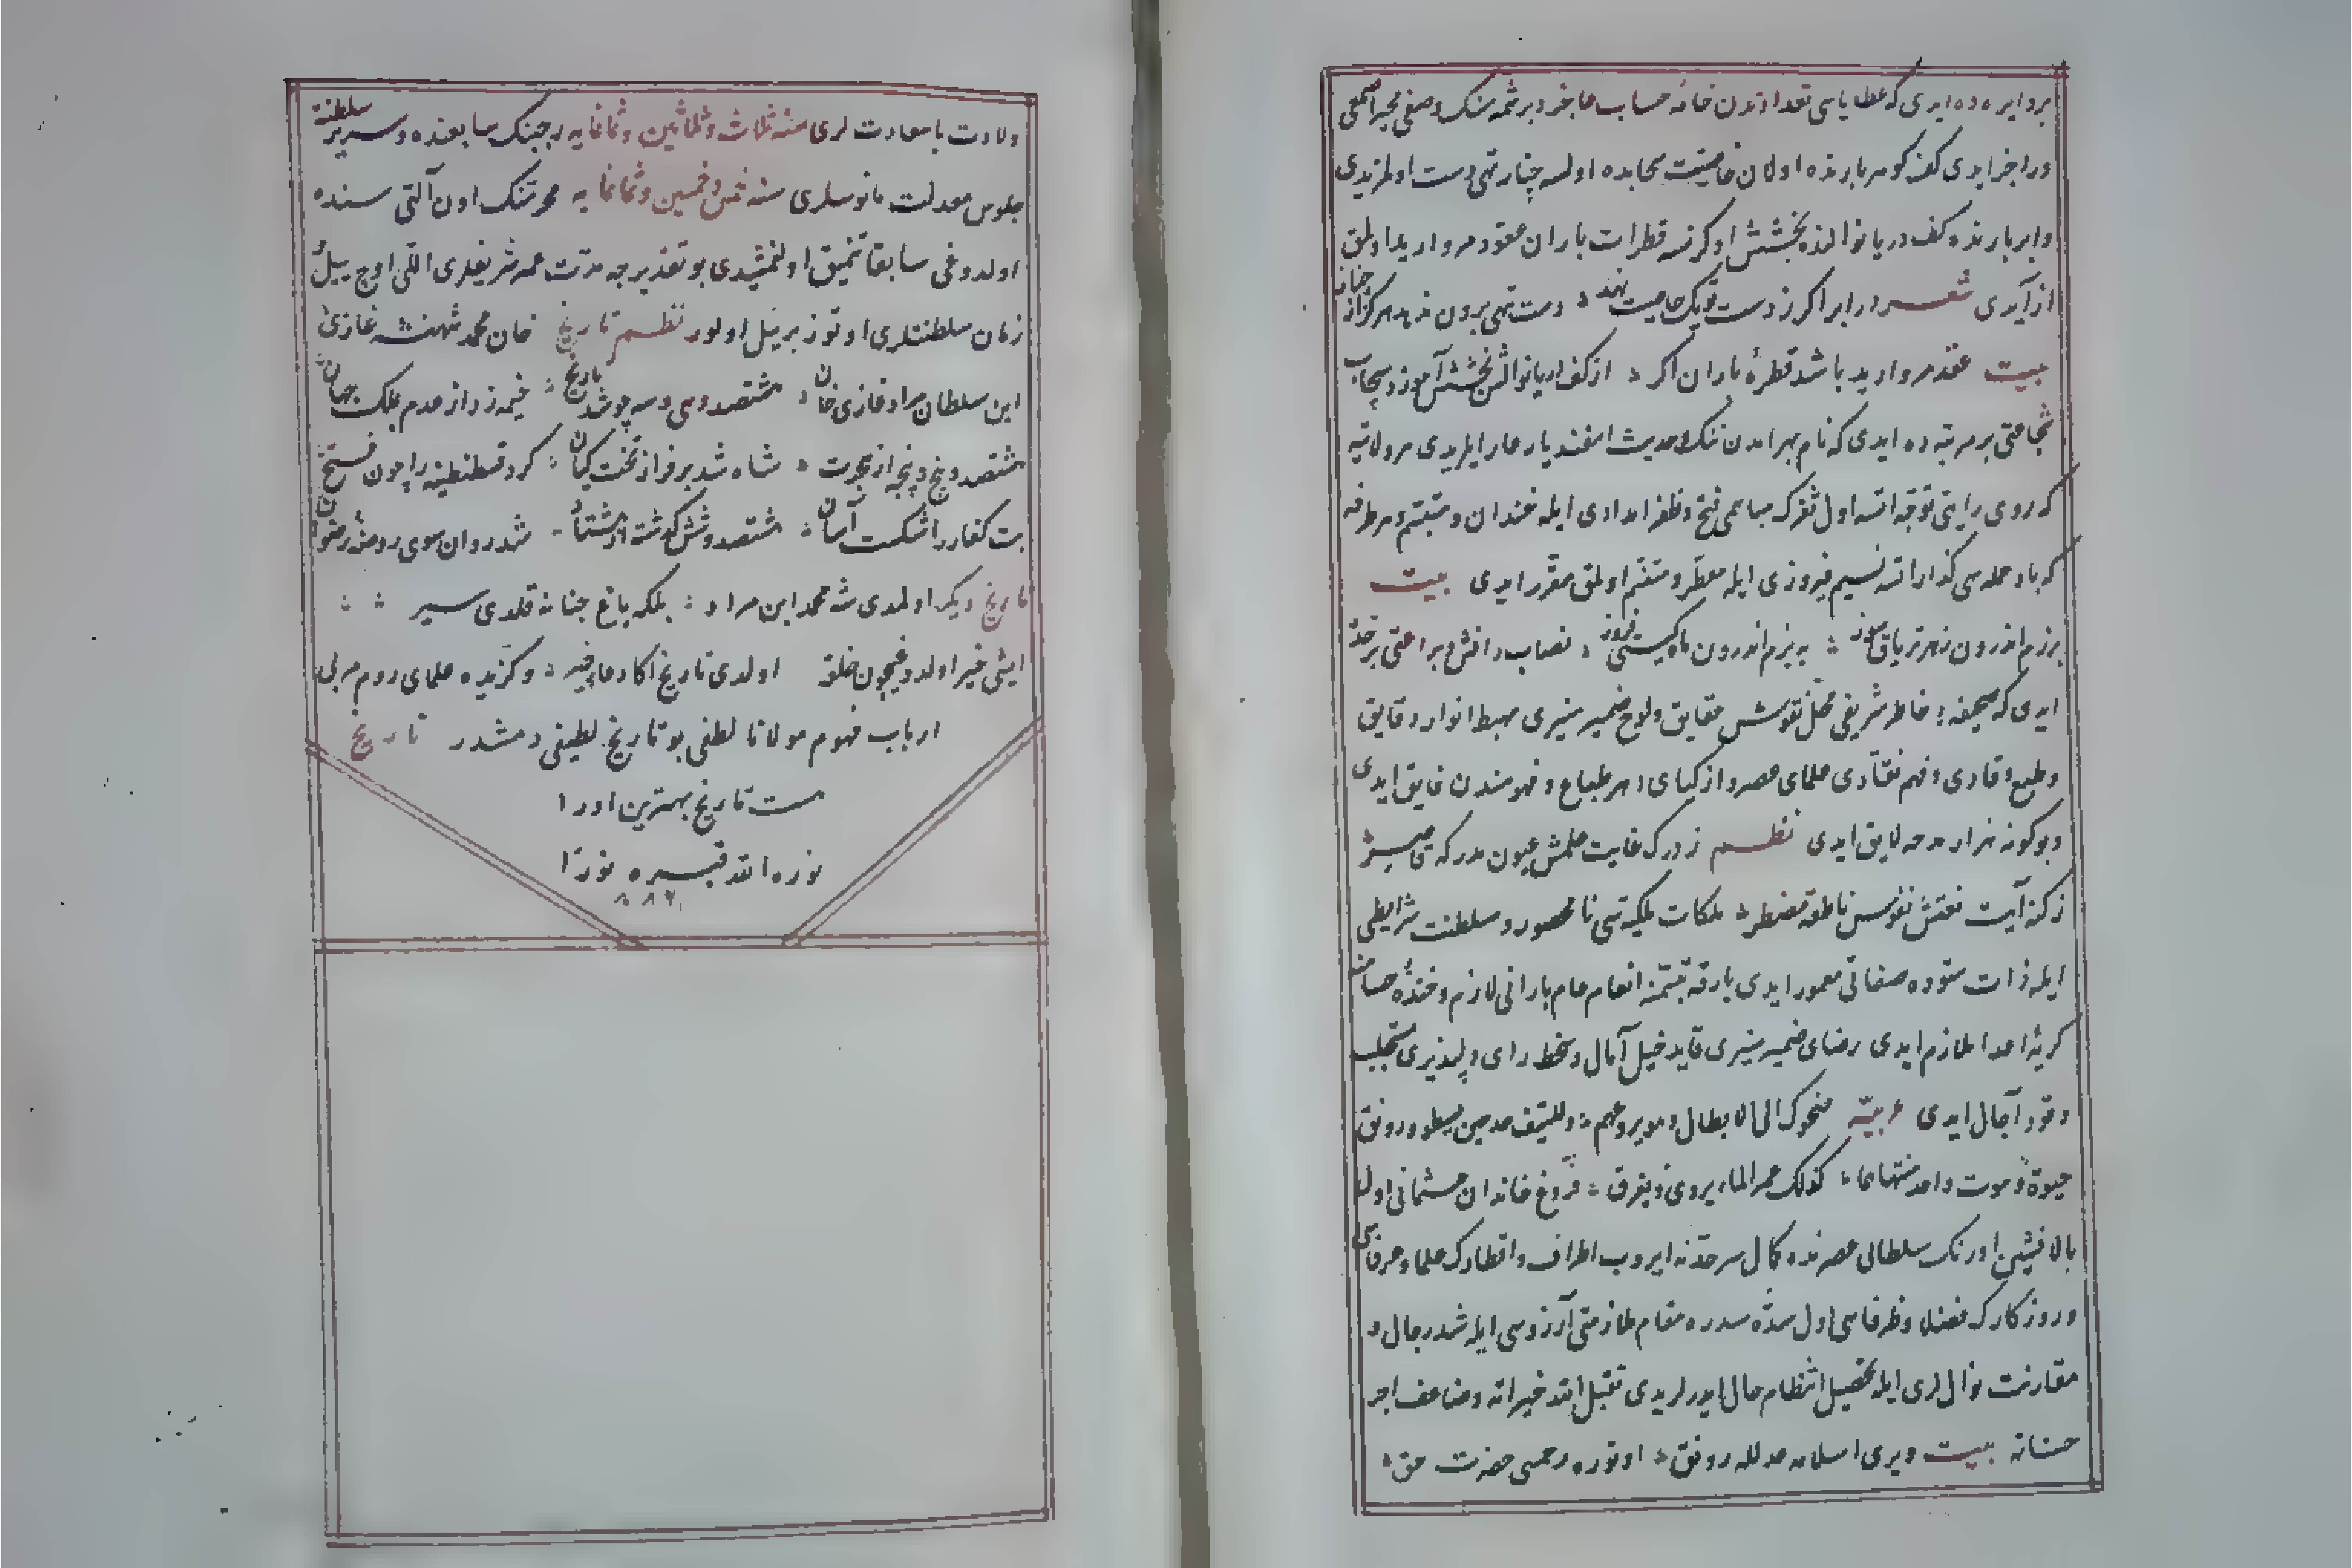 بر دایره ده ایدی که عطایاسی تعدادندن خامهٔ حساب عاجز و بر شمه سنک وصفی محبر اصمعی
دن اجز ایدی کف کوهر بارنده اولان خاصیت سحابده اولسه چنار تهی دست اولمزیدی
و ابر بارنده کف دریا نوالندن بخشش اوکرنسه قطرات باران عقود مروارید اولمق
از آیدی شعر در ابر اگر ز دست تو یک خاصیت نهند دست تهی برون ندمد هرگز از چنار
بیت عقد مروارید باشد قطرهٔ باران اگر از کف دریا نوالش بخشش آموزد سحاب
شجاعتی بر مرتبه ده ایدی که نام بهرامدن ننک و حدیث اسفندیاردن عار ایلریدی هر ولایته
که روی رایتی توجه اتسه اول ثغرک مباسمی فتح و ظفر امدادی ایله خندان و متبسم و هر طرفه
که باد حمله سی گذار اتسه نسیم فیروزی ایله معطر و متنسم اولمق مقرر ایدی بیت
برزم اندرون زهر تریاق سوز به بزم اندرون ماه گیتی فروز نصاب دانش و براعتی بر حده
ایدی که صحیفهٔ خاطر شریفی محل نقوش حقایق و لوح ضمیر منیری مهبط انوار دقایق
و طبع وقادی و فهم نقادی علمای عصر و ازکیای دهر طباع و فهومندن فایق ایدی
و بو کونه هزار مدحه لایق ایدی نظم ز درک غایت حلمش عیون مدرکه قاصر
ز کنه آیت نعتش نفوس ناطقه مضطر ملکات ملکیه سی نامحصور و سلطنت شرایطی
ایله ذات ستوده صفاتی معمور ایدی بارقهٔ تبسمنه انعام عام بارانی لازم و خندهٔ حسامنه
گریهٔ اعدا ملازم ایدی رضای ضمیر منیری قاید خیل آمال و سخط رای دلپذیری مستجلب
وقود آجال ایدی عربیه ضحوک الی الابطال
حیوة و موت واحد منتهاهما کذلک غمر الماء یروی و یغرق فروغ خاندان عثمانی اولان
بالانشین اورنک سلطانی عصرنده کمال سرحدنه ایروب اطراف و اقطارک علما و عرفاسی
و روزکارک فضلا و ظرفاسی اول سدهٔ سدره مقام ملازمتی آرزوسی ایله شد رحال و
مقارنت نوال لری ایله تحصیل انتظام حال ایدرلریدی تقبل الله خیراته و ضاعف اجر
حسناته بیت ویردی اسلامه عدلله رونق اوتوره رحمتی حضرت حق
ولادت با سعادت لری سنه ثلاث و ثلاثین و ثمانمایه رجبنک سابعنده و سریر سلطنته
جلوس معدلت مانوسلری سنه خمس و خمسین و ثمانمایه محرمنک اون آلتی سنده
اولدوغی سابقا تنمیق اولنمشیدی بو تقدیرجه مدت عمر شریفلری اللی اوچ ییل
زمان سلطنتلری اوتوز بر ییل اولور نظم تاریخ خان محمد شهنشه غازی
ابن سلطان مراد غازی خان هشتصد و سی و سه چو شد تاریخ خیمه زد از عدم بملک جهان
هشتصد و پنج و پنجه از هجرت شاه شد بر فراز تخت کیان کرد قسطنطنیه را چون فتح
بت کفار را شکست آسان هشتصد و شش گذشته و هشتاد شد روان سوی روضهٔ رضوان
تاریخ دیکر اولمدی شه محمد ابن مراد بلکه باغ جنانه قلدی سیر
ایشی خیر اولدوغیچون خلق اولدی تاریخ اکا دعای خیر و گزیده علمای روم مربی
ارباب فهوم مولانا لطفی بو تاریخ لطیفی دمشدر تاریخ
هست تاریخ بهترین اورا
نوره الله قبره نورا
٨٨٦